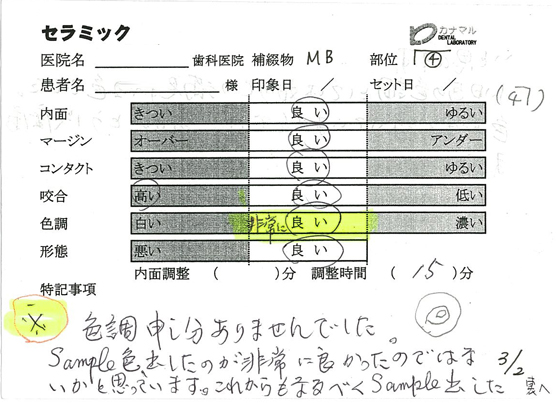 セラミック
カナマル
DENTAL LABORATORY
医院名 歯科医院 補綴物 MB 部位 ④
患者名 様 印象日 / セット日 /
(47)
内面 きつい 良い ゆるい
マージン オーバー 良い アンダー
コンタクト きつい 良い ゆるい
咬合 高い 良い 低い
色調 白い 非常に 良い 濃い
形態 悪い 良い
内面調整 ( )分 調整時間 ( 15 )分
特記事項
色調申し分ありませんでした。
Sample色出したのが非常に良かったのではな
いかと思っています。これからもなるべくSample出した
3/2
裏へ